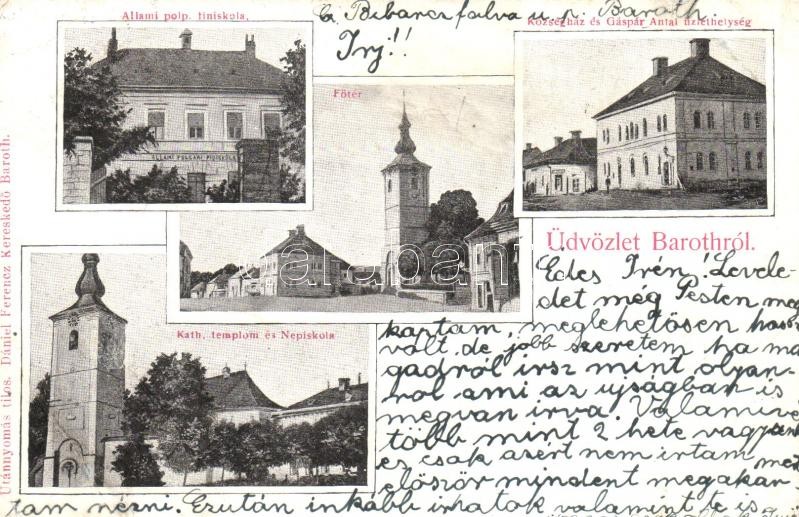 Állami polp. finiskola,
Cz. Bibarczfalva u. p. Baróth.
Irj!!
Községház és Gáspár Antal üzlethelység
Főtér
ÁLLAMI POLGÁRI FIÚISKOLA
Üdvözlet Barothról.
Kath. templom és Nepiskola
Utánnyomás tilos. Dániel Ferencz Kereskedő Baroth.
Darabanth
Edes Irén! Levele-
det még Pesten meg
kaptam, meglehetősen hosszú
volt, de jobb szeretem ha ma-
gadról irsz mint olyan-
ról ami az ujságban is
megvan irva. Valamive
több mint 2 hete vagyunk
es csak azért nem irtam mert
először mindent megakar-
tam nézni. Ezután inkább irhatok valamint te is